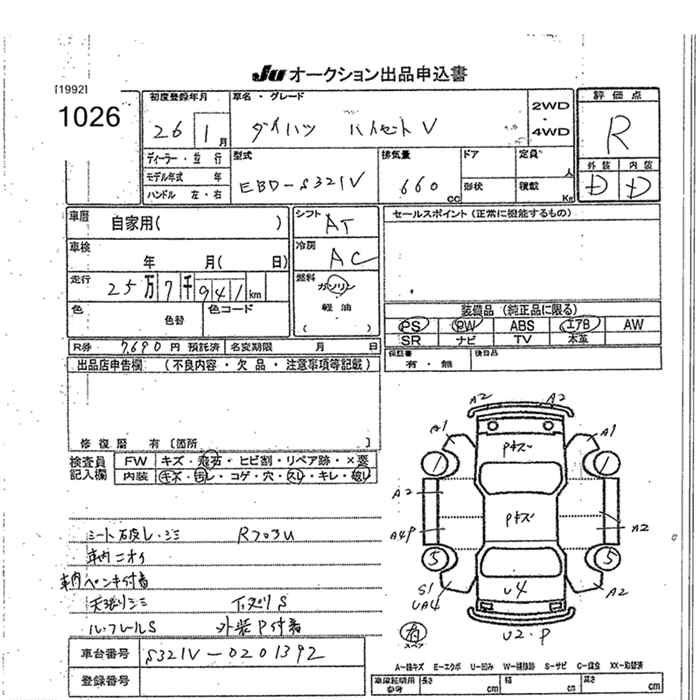 JU オークション出品申込書
[1992]
1026
初度登録年月
26 1月
車名・グレード
ダイハツ ハイゼット V
2WD
・
4WD
評価点
R
外装 内装
D D
ディーラー・並行
モデル年式 年
ハンドル 左・右
型式
EBD-S321V
排気量
660 cc
ドア
形状
定員 人
積載 Kg
車歴
自家用( )
シフト
AT
セールスポイント(正常に機能するもの)
車検
年 月( 日)
冷房
AC
走行
25万7千941km
燃料
ガソリン
・
軽油
( )
色
色替
色コード
装備品(純正品に限る)
PS PW ABS エアB AW
SR ナビ TV 本革
R券 7,690円 預託済 名変期限 月 日
保証書
有・無
後日品
出品店申告欄(不良内容・欠品・注意事項等記載)
修復歴 有〔箇所 〕
検査員
記入欄
FW キズ・飛石・ヒビ割・リペア跡・×要
内装 キズ・汚レ・コゲ・穴・スレ・キレ・破レ
シート破レ・シミ
車内ニオイ
車内ペンキ付着
天張リシミ 下廻りS
ルーフレールS 外装P付着
車台番号 S321V-0201392
登録番号
A2 A2
A1 A1
Pキズ
A2
Pキズ
A4P A2
5 5
S1
UA4
U4
A2
スペア
U2・P
A-線キズ E-エクボ U-凹み W-補修跡 S-サビ C-腐食 XX-取替済
車庫証明用
参考
長さ cm
幅 cm
高さ cm